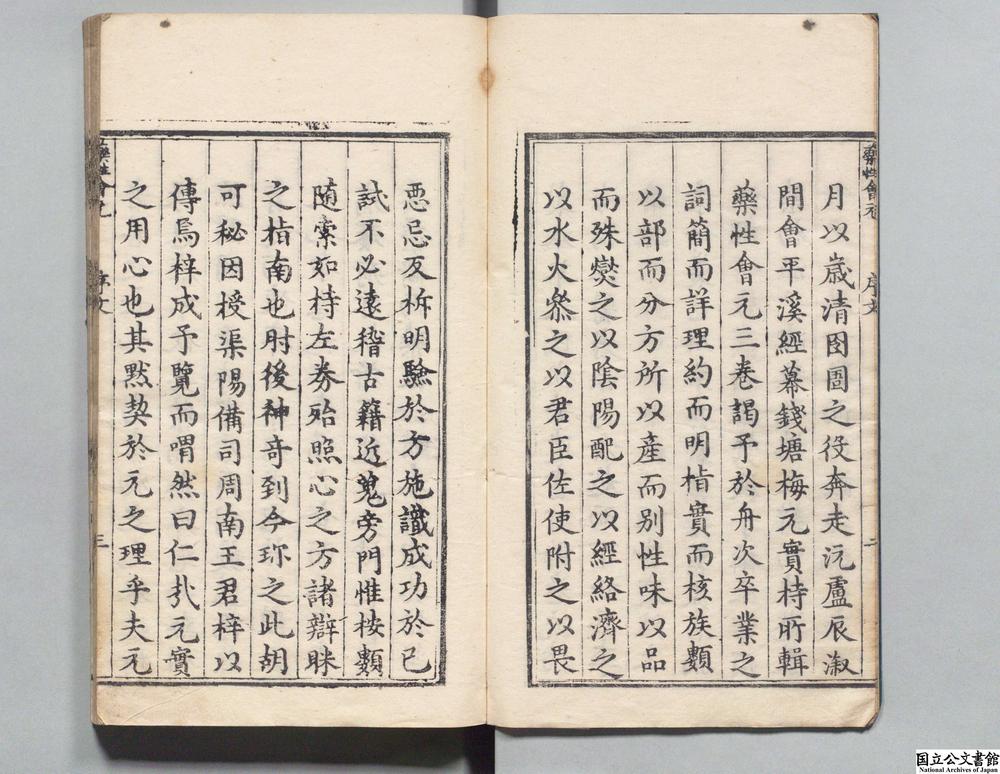 藥性會元 序文 二
月以歲清囹圄之役奔走沅盧辰溆
間會平溪經幕錢塘梅元實持所輯
藥性會元三卷謁予於舟次卒業之
詞簡而詳理約而明棤實而核族數
以部而分方所以產而别性味以品
而殊爕之以陰陽配之以經絡濟之
以水火叅之以君臣佐使附之以畏
惡忌反析明驗於方施識成功於已
試不必遠稽古籍近蒐旁門惟按數
随索如持左券殆照心之方諸辯眯
之指南也肘後神奇到今珎之此胡
可秘因授渠陽備司周南王君梓以
傳焉梓成予覽而喟然曰仁扎元實
之用心也其黙契於元之理乎夫元
藥性會元 序文 三
国立公文書館
National Archives of Japan